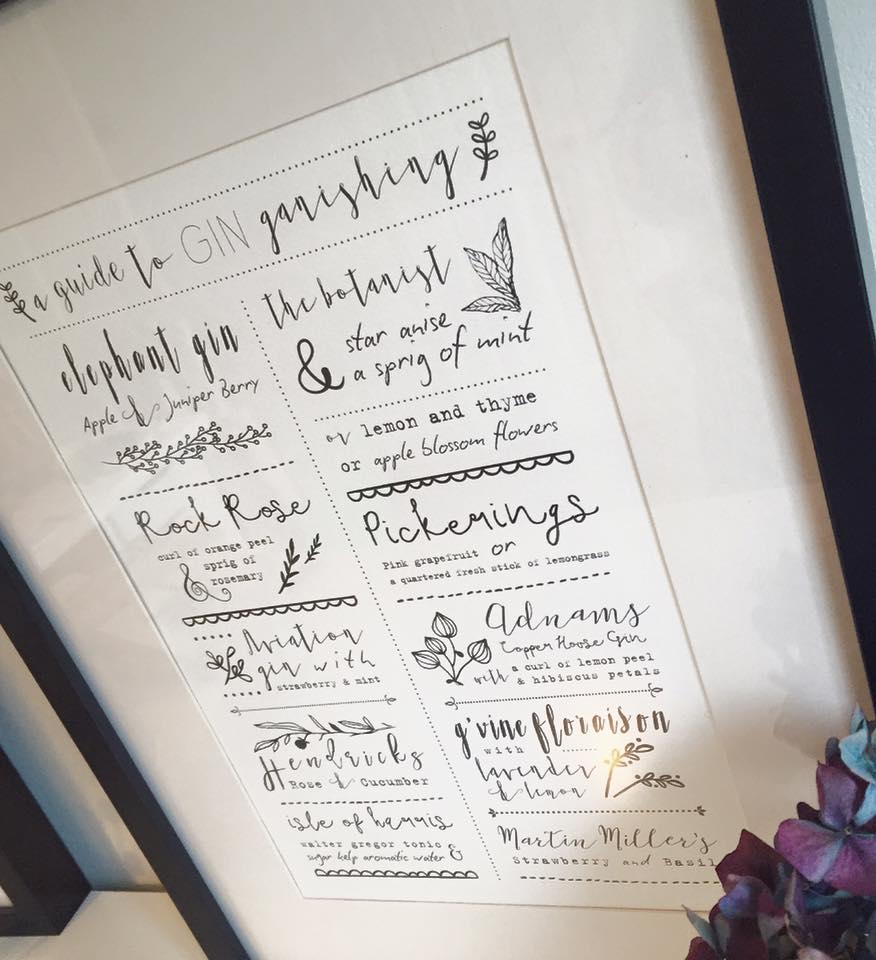 a guide to GIN ganishing
elephant gin
Apple & Juniper Berry
Rock Rose
curl of orange peel
& sprig of
rosemary
Aviation
gin with
strawberry & mint
Hendricks
Rose & Cucumber
isle of harris
walter gregor tonic &
sugar kelp aromatic water
the botanist
& star anise
a sprig of mint
or lemon and thyme
or apple blossom flowers
Pickerings
Pink grapefruit or
a quartered fresh stick of lemongrass
Adnams
Copper House Gin
with a curl of lemon peel
& hibiscus petals
g'vine floraison
with
lavender
& lemon
Martin Miller's
Strawberry and Basil